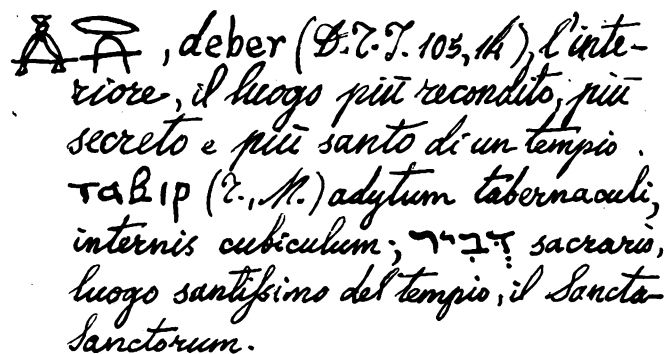 , deber (D.T.I. 105, 14), l'inte-
riore, il luogo più recondito, più
secreto e più santo di un tempio.
ⲧⲁⲃⲓⲣ (T., M.) adytum tabernaculi,
internis cubiculum; דְּבִיר sacrario,
luogo santissimo del tempio, il Sancta-
Sanctorum.